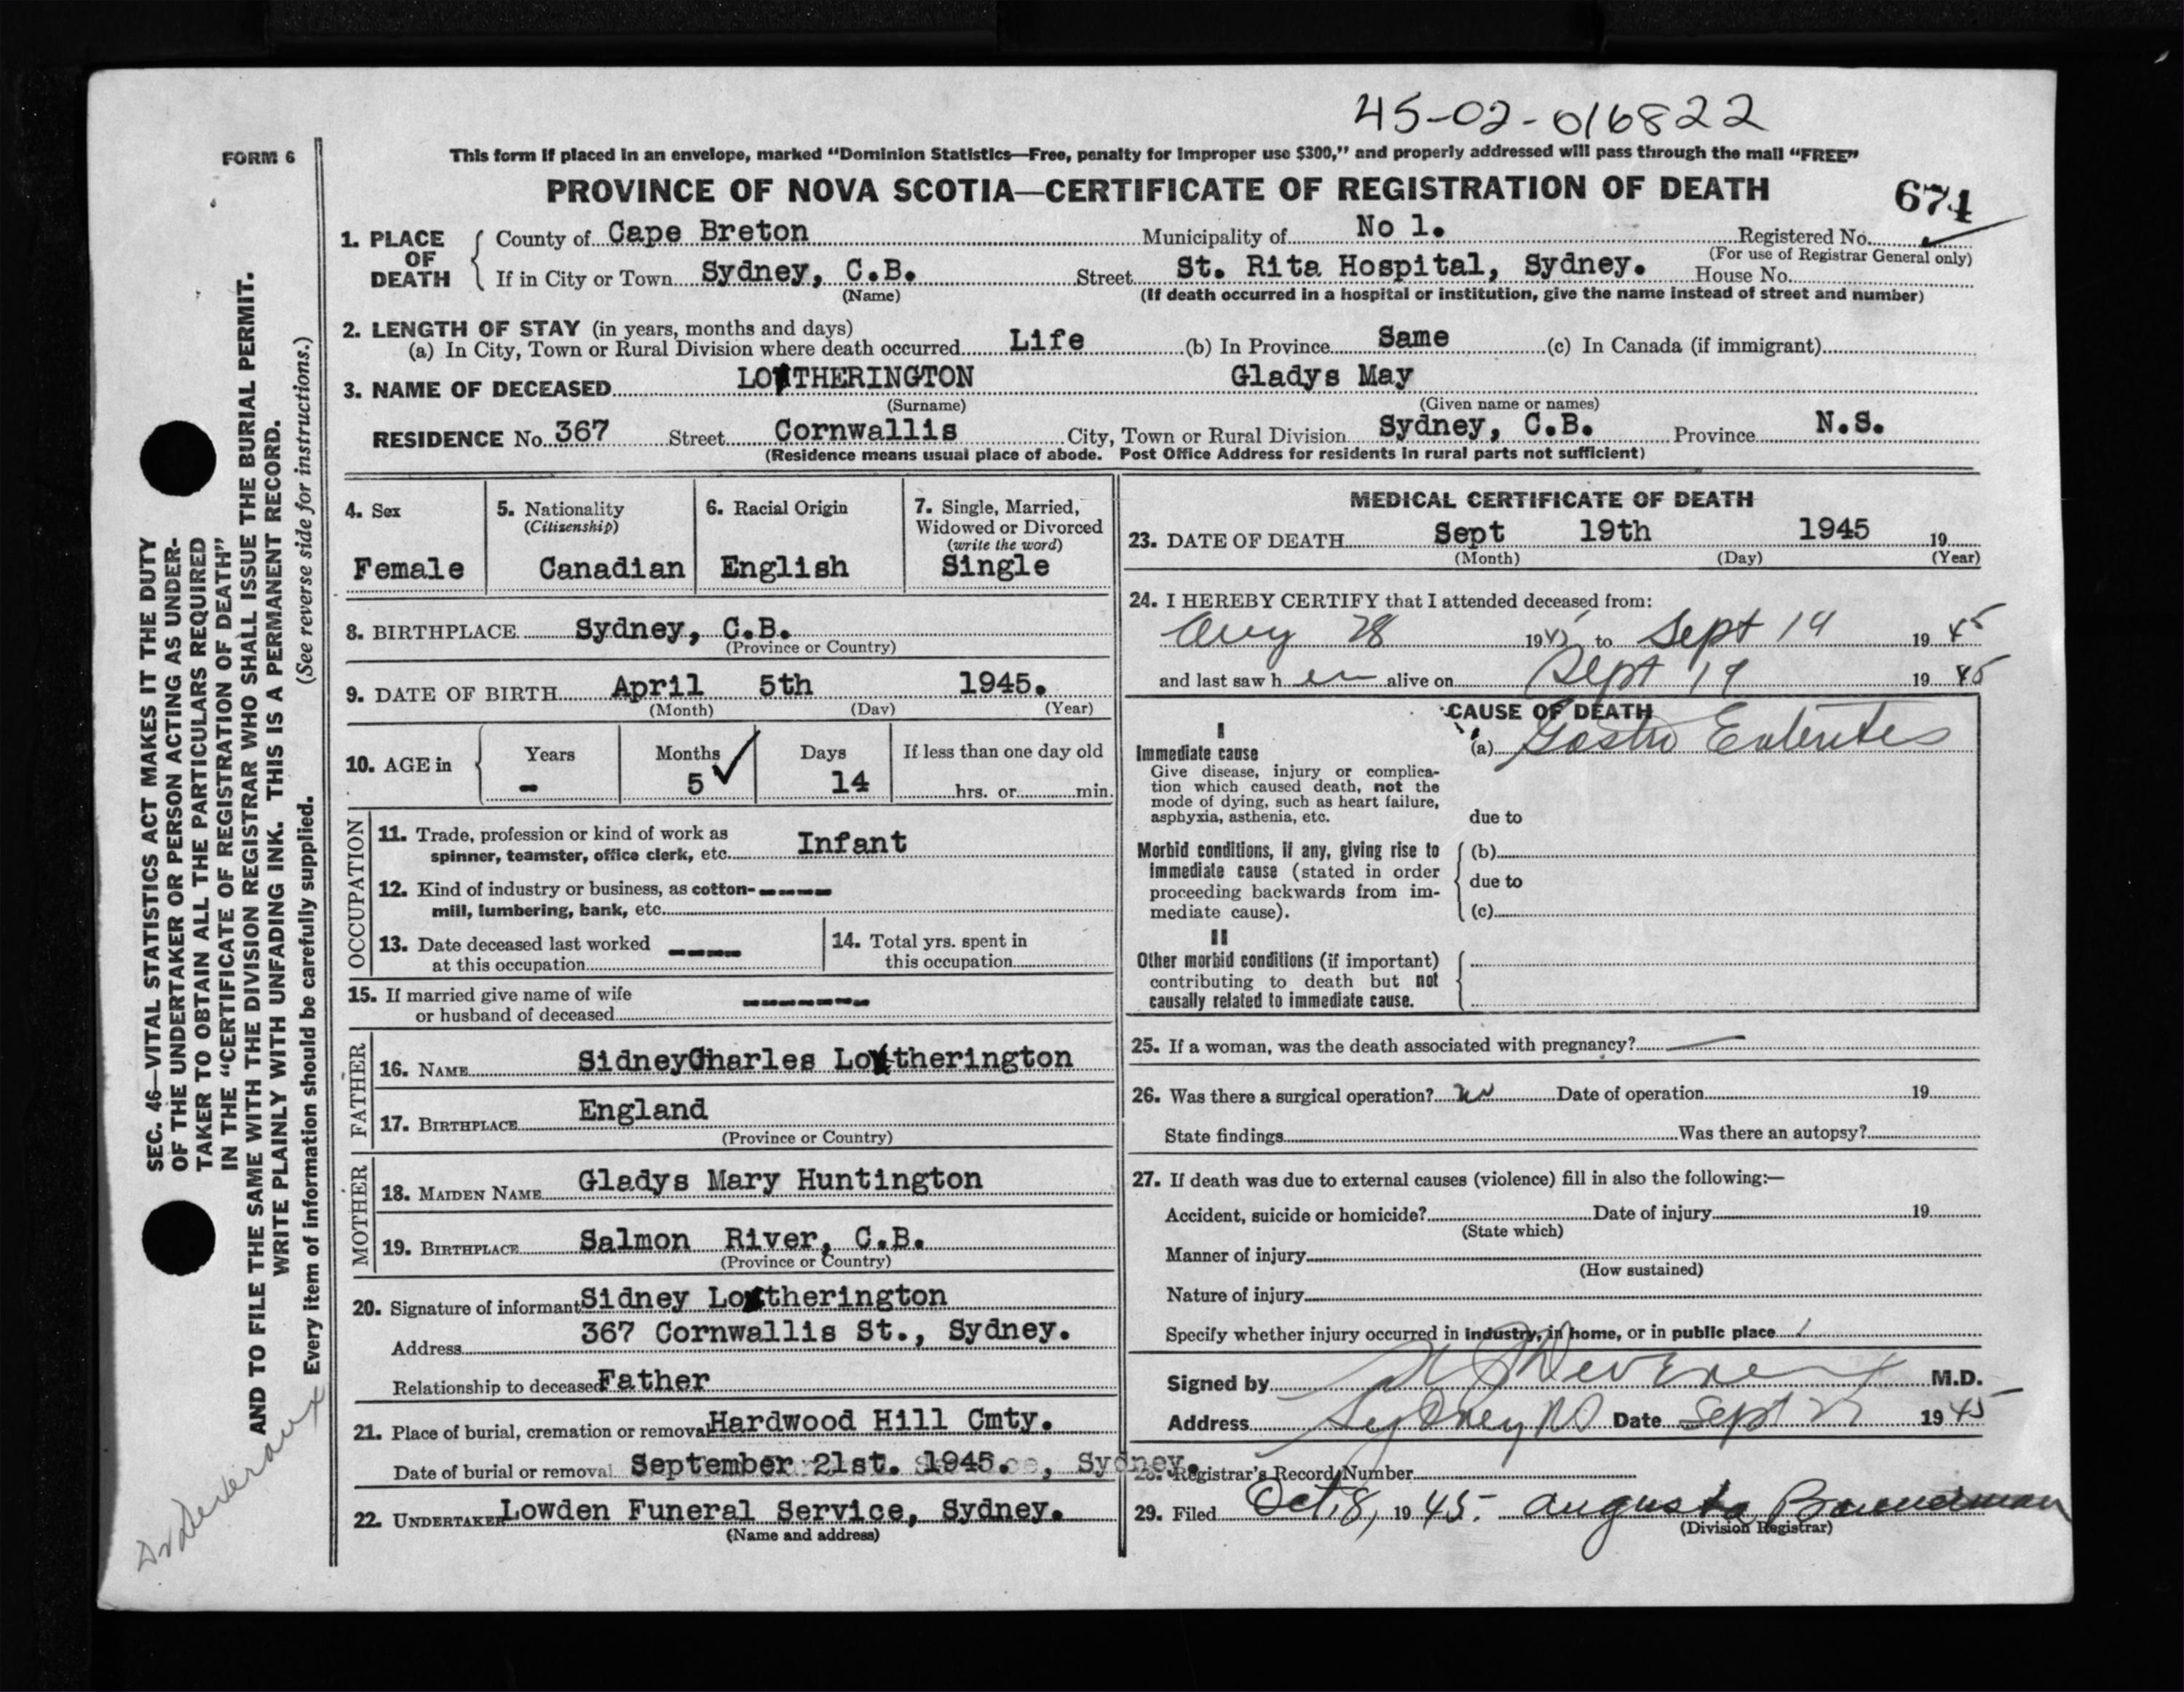 45-02-016822
FORM 6
This form if placed in an envelope, marked "Dominion Statistics—Free, penalty for improper use $300," and properly addressed will pass through the mail "FREE"
PROVINCE OF NOVA SCOTIA—CERTIFICATE OF REGISTRATION OF DEATH
674
1. PLACE OF DEATH
County of Cape Breton Municipality of No 1. Registered No.
(For use of Registrar General only)
If in City or Town Sydney, C.B. Street St. Rita Hospital, Sydney. House No.
(Name) (If death occurred in a hospital or institution, give the name instead of street and number)
2. LENGTH OF STAY (in years, months and days)
(a) In City, Town or Rural Division where death occurred Life (b) In Province Same (c) In Canada (if immigrant)
3. NAME OF DECEASED LOTHERINGTON Gladys May
(Surname) (Given name or names)
RESIDENCE No. 367 Street Cornwallis City, Town or Rural Division Sydney, C.B. Province N.S.
(Residence means usual place of abode. Post Office Address for residents in rural parts not sufficient)
4. Sex
Female
5. Nationality
(Citizenship)
Canadian
6. Racial Origin
English
7. Single, Married,
Widowed or Divorced
(write the word)
Single
8. BIRTHPLACE Sydney, C.B.
(Province or Country)
9. DATE OF BIRTH April 5th 1945.
(Month) (Day) (Year)
10. AGE in
Years Months Days If less than one day old
- 5 14 hrs. or min.
OCCUPATION
11. Trade, profession or kind of work as
spinner, teamster, office clerk, etc. Infant
12. Kind of industry or business, as cotton- ----
mill, lumbering, bank, etc.
13. Date deceased last worked ----
at this occupation
14. Total yrs. spent in
this occupation
15. If married give name of wife -------
or husband of deceased
FATHER
16. NAME SidneyCharles Lotherington
17. BIRTHPLACE England
(Province or Country)
MOTHER
18. MAIDEN NAME Gladys Mary Huntington
19. BIRTHPLACE Salmon River, C.B.
(Province or Country)
20. Signature of informant Sidney Lotherington
Address 367 Cornwallis St., Sydney.
Relationship to deceased Father
21. Place of burial, cremation or removal Hardwood Hill Cmty.
Date of burial or removal September 21st. 1945. , Sydney.
22. UNDERTAKER Lowden Funeral Service, Sydney.
(Name and address)
MEDICAL CERTIFICATE OF DEATH
23. DATE OF DEATH Sept 19th 1945 19
(Month) (Day) (Year)
24. I HEREBY CERTIFY that I attended deceased from:
Aug 28 1945 to Sept 19 1945
and last saw h er alive on Sept 19 1945
CAUSE OF DEATH
I
Immediate cause
Give disease, injury or complica-
tion which caused death, not the
mode of dying, such as heart failure,
asphyxia, asthenia, etc.
(a) Gastro Enteritis
due to
Morbid conditions, if any, giving rise to
immediate cause (stated in order
proceeding backwards from im-
mediate cause).
(b)
due to
(c)
II
Other morbid conditions (if important)
contributing to death but not
causally related to immediate cause.
25. If a woman, was the death associated with pregnancy? —
26. Was there a surgical operation? no Date of operation 19
State findings Was there an autopsy?
27. If death was due to external causes (violence) fill in also the following:—
Accident, suicide or homicide? Date of injury 19
(State which)
Manner of injury
(How sustained)
Nature of injury
Specify whether injury occurred in industry, in home, or in public place
Signed by M.D.
Address Sydney NS Date Sept 1945
28. Registrar's Record Number
29. Filed Oct. 8, 1945. Augusta
(Division Registrar)
SEC. 46—VITAL STATISTICS ACT MAKES IT THE DUTY
OF THE UNDERTAKER OR PERSON ACTING AS UNDER-
TAKER TO OBTAIN ALL THE PARTICULARS REQUIRED
IN THE "CERTIFICATE OF REGISTRATION OF DEATH"
AND TO FILE THE SAME WITH THE DIVISION REGISTRAR WHO SHALL ISSUE THE BURIAL PERMIT.
WRITE PLAINLY WITH UNFADING INK. THIS IS A PERMANENT RECORD.
Every item of information should be carefully supplied. (See reverse side for instructions.)
Dr Devereaux